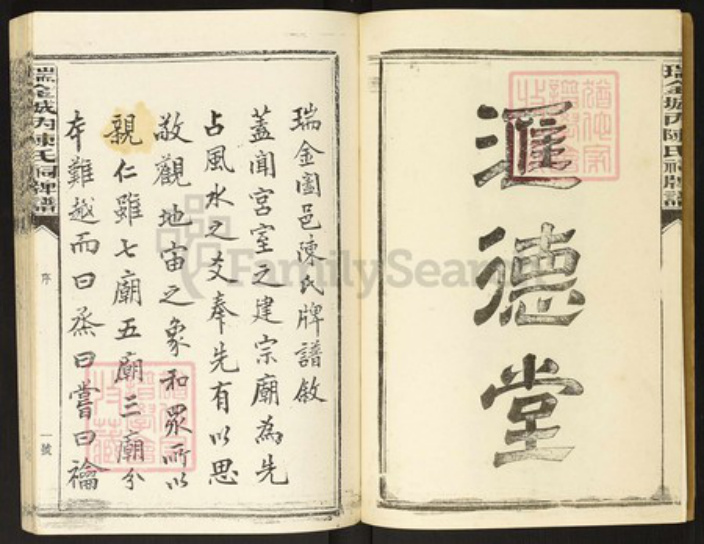 匯德堂
瑞金城內陳氏祠牌譜
瑞金圖邑陳氏牌譜敘
蓋聞宮室之建宗廟為先
占風水之爻奉先有以思
敬觀地宙之象和眾所以
親仁雖七廟五廟三廟分
本難越而曰烝曰嘗曰禴
瑞金城內陳氏祠牌譜
序
一號
FamilySearch